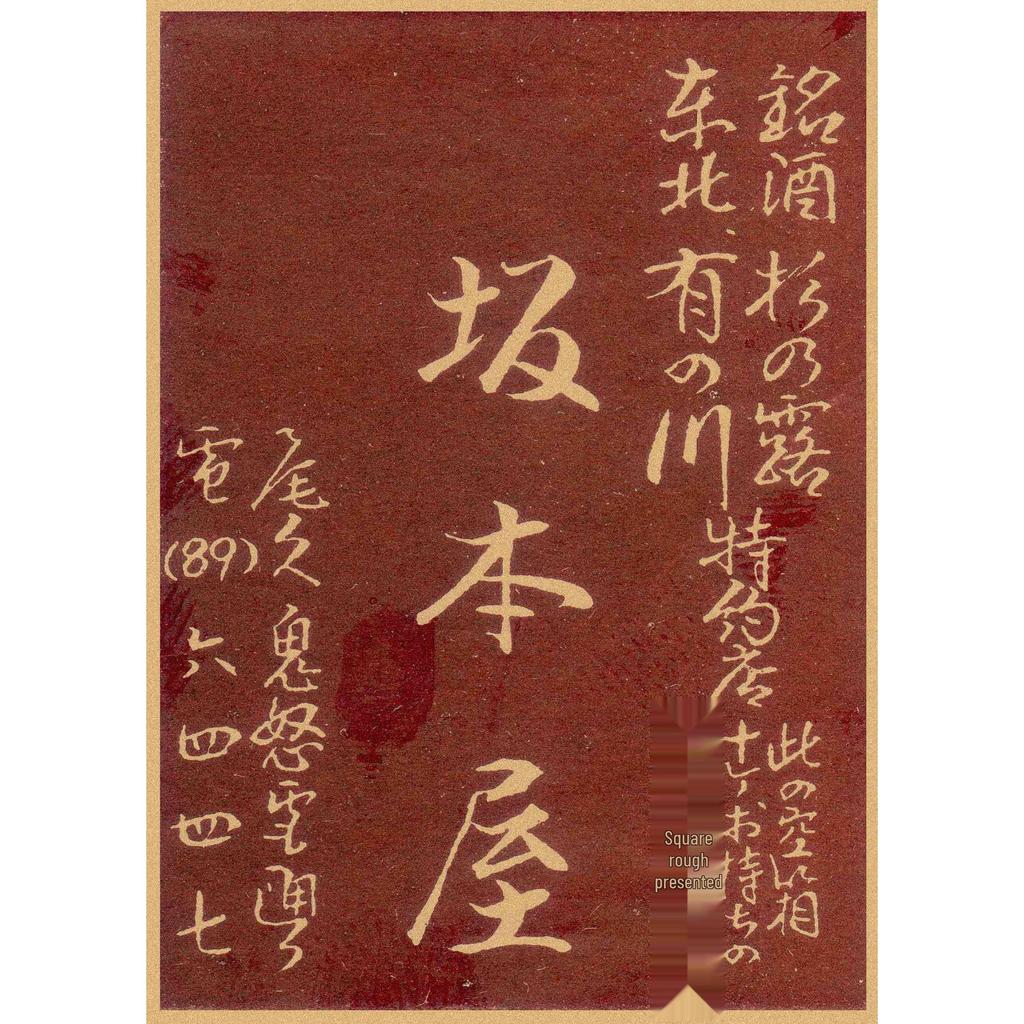 銘酒 杉の露
东北、有の川
特約店
此の空に相
十ヶお持ちの
坂本屋
尾久
電(89)六四四七
Square
rough
presented